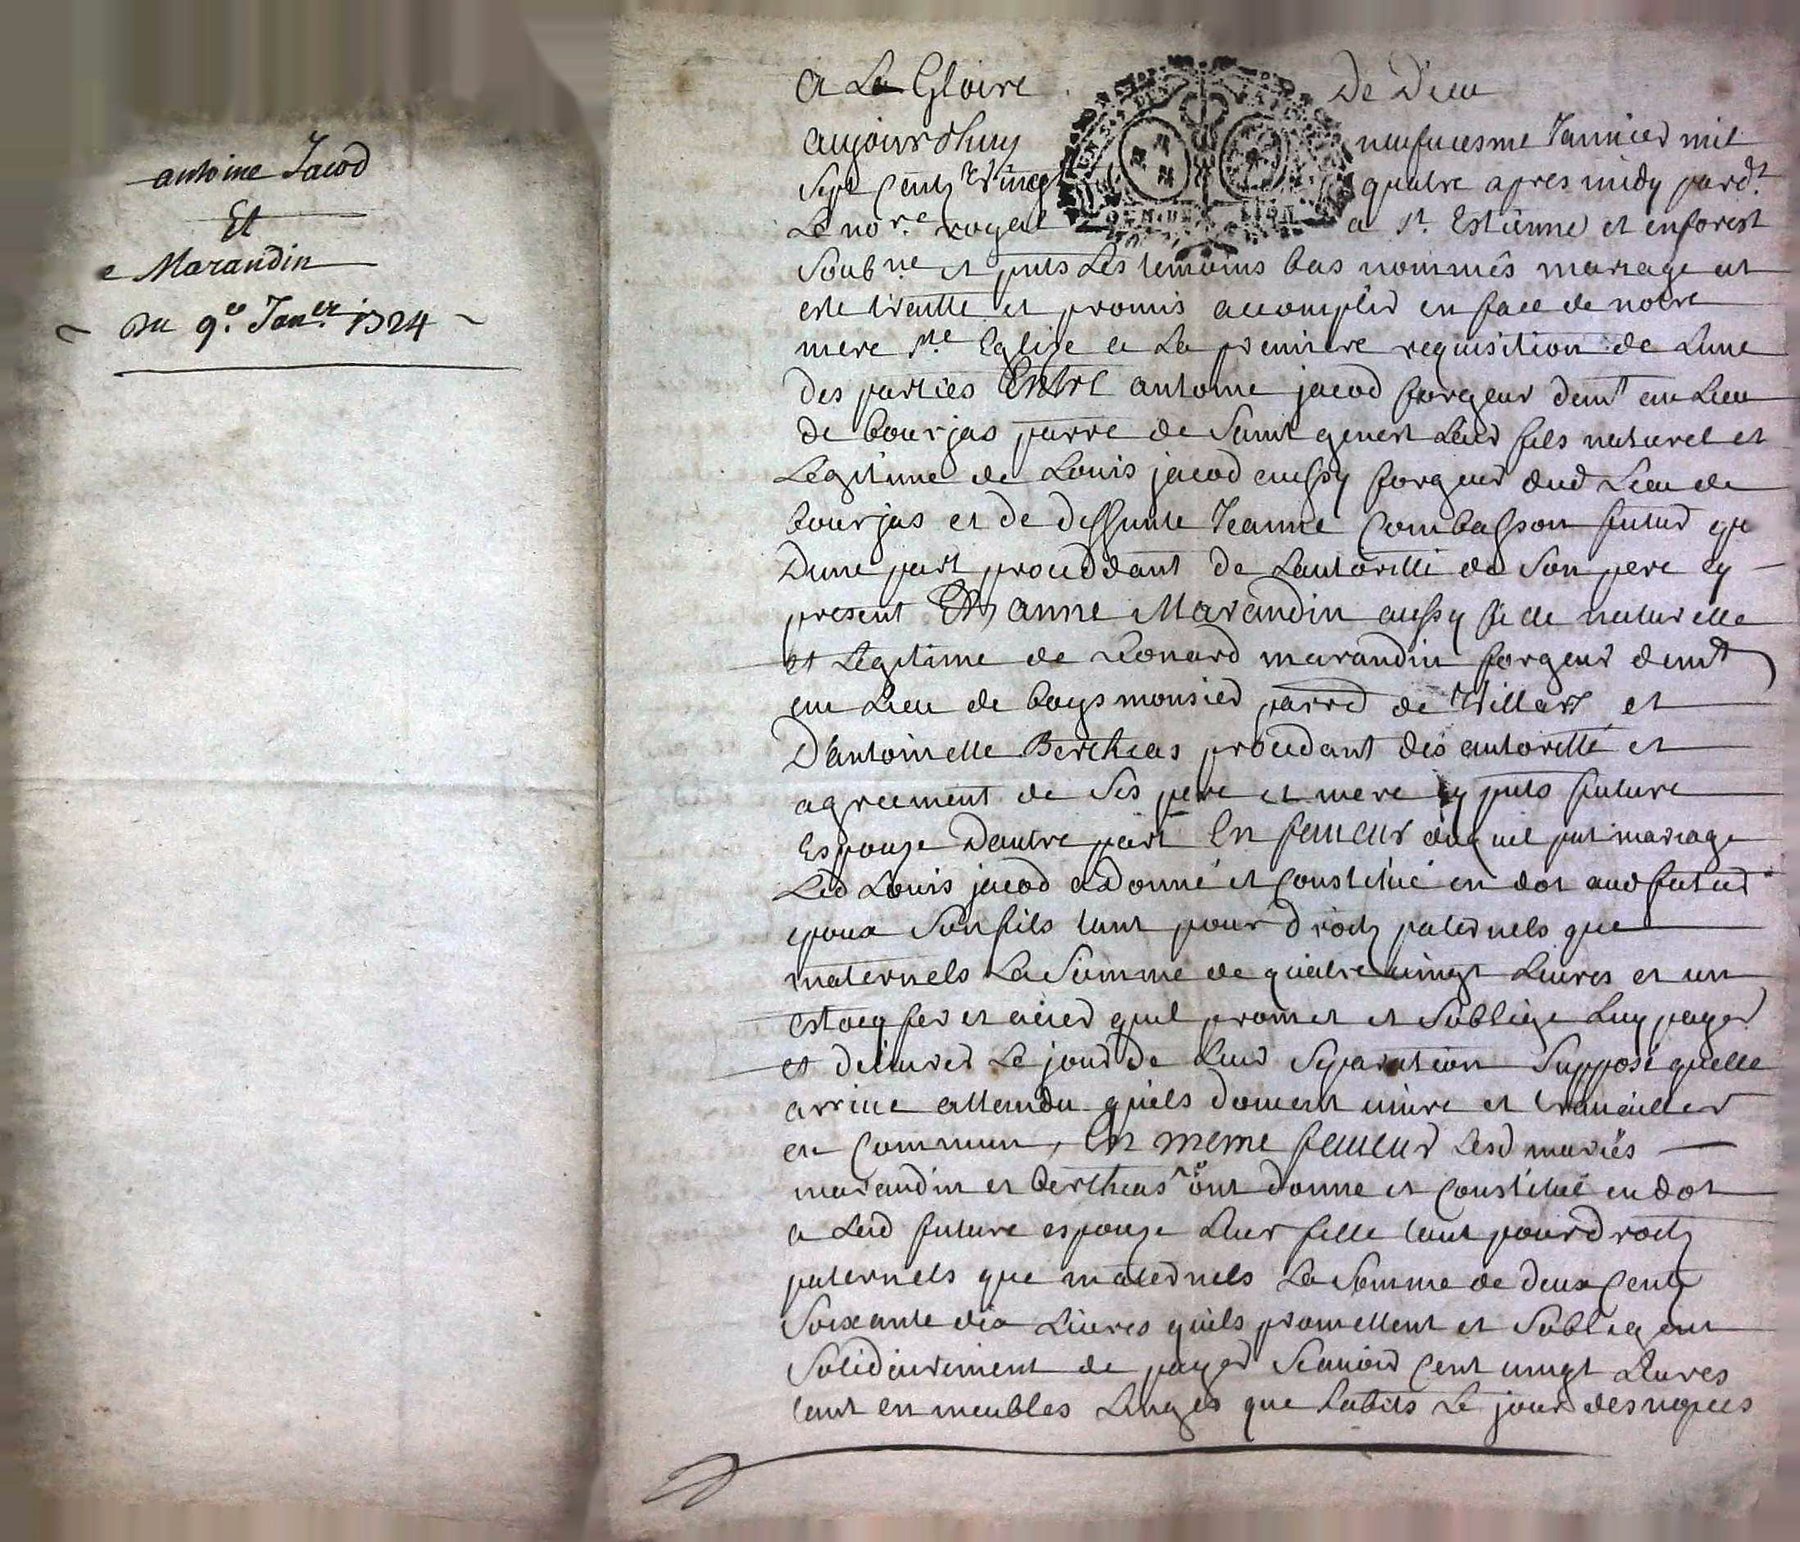 antoine Jacod
Et
e Marandin
Du 9.e Jan.er 1724
A La Gloire De Dieu
aujourdhuy neufuiesme Januier mil
Sept Cents Vingt quatre apres midy pard.t
Le no.re royal a S.t Estienne et en forest
Soub.ne et pnts Les temoins bas nommés mariage at
este traitté et promis accomplir en face de notre
mere s.te Eglize a La premiere requisition de Lune
des parties Entre antoine jacod forgeur dem.t au Lieu
de bourjas parre de Saint genest Lerd fils naturel et
Legitime de Louis jacod aussy forgeur dud Lieu de
bourjas et de deffunte Jeanne Combasson futur
Dune part proceddant de Lautoritté de Son pere cy
present Et anne Marandin aussy fille naturelle
et Legitime de Leonard marandin forgeur dem.t
au Lieu de bays monsieu parre de Villars et
D'antoinette Bercheas procedant des autoritté et
agreement de Ses pere et mere cy pnts future
Espouze Dautre part En faueur duquel pnt mariage
Led Louis jacod a Donné et Constitué en dot aud futur
epoux Son fils tant pour droits paternels que
maternels La Somme de quatre uingt Liures et un
estocq fer et acier quil promet et Soblige Luy payer
et deliurer Le jour de Leur Separation Supposé quelle
arriue attendu quils doiuent uiure et trauailler
en Commun, En meme faueur Lesd mariés
marandin et bercheas ont donne et Constitué en dot
a Lad future espouze Leur fille tant pour droits
paternels que maternels La Somme de deux Cents
Soixante dix Liures quils promettent et Sobligent
Solidairement de payer Scauoir Cent uingt Liures
tant en meubles Linges que habits Le jour des nopces